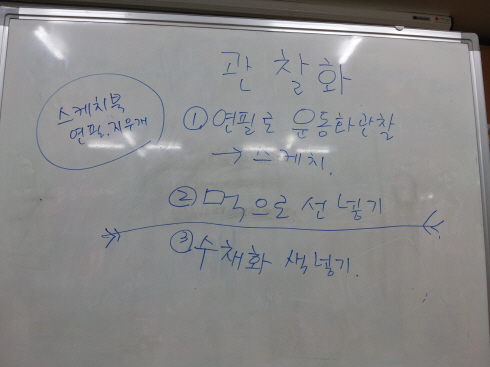 관찰화
스케치북
연필, 지우개
① 연필로 운동화관찰
→ 스케치.
② 먹으로 선 넣기
③ 수채화 색넣기.